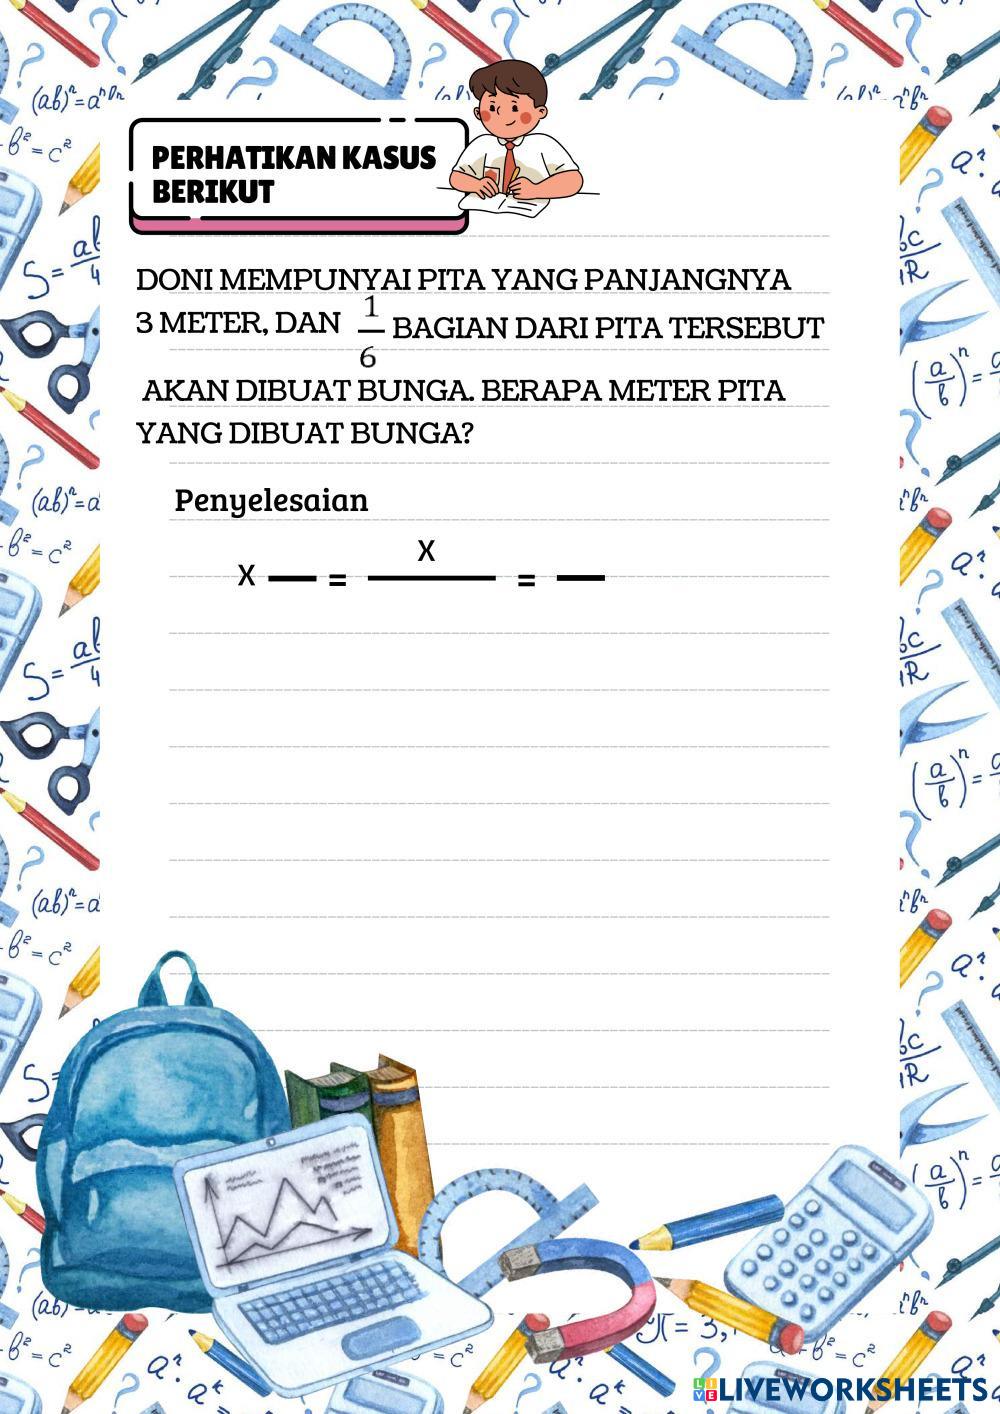 PERHATIKAN KASUS
BERIKUT
DONI MEMPUNYAI PITA YANG PANJANGNYA
3 METER, DAN 1/6 BAGIAN DARI PITA TERSEBUT
AKAN DIBUAT BUNGA. BERAPA METER PITA
YANG DIBUAT BUNGA?
Penyelesaian
X
X — = — = —
LIVEWORKSHEETS